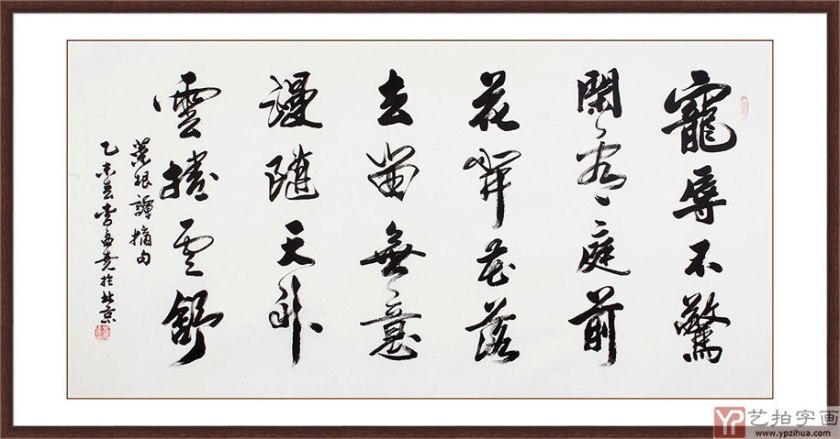 寵辱不驚
閑看庭前
花開花落
去留無意
漫隨天外
雲捲雲舒
菜根譚摘句
乙未春李於北京
YP 艺拍字画
www.ypzihua.com